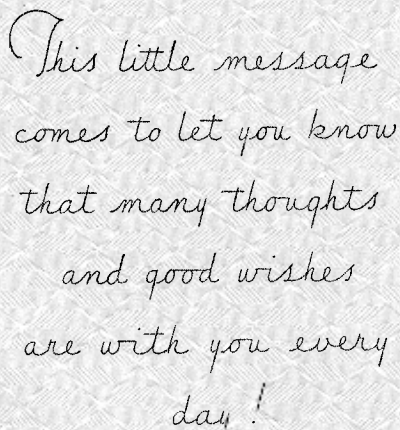 This little message
comes to let you know
that many thoughts
and good wishes
are with you every
day!